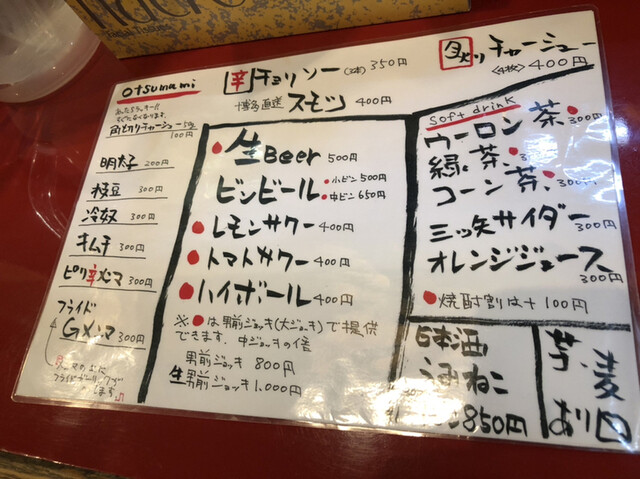 otsumami
角切りチャーシュー50g
100円
明太子 200円
枝豆 300円
冷奴 300円
キムチ 300円
ピリ辛メンマ 300円
フライド
Gメンマ 300円
辛チョリソー(2本) 350円
博多直送 スモツ 400円
炙りチャーシュー
<4枚> 400円
生Beer 500円
ビンビール ・小ビン 500円
・中ビン 650円
レモンサワー 400円
トマトサワー 400円
ハイボール 400円
※●は男前ジョッキ(大ジョッキ)で提供
できます、中ジョッキの倍
男前ジョッキ 800円
生男前ジョッキ 1,000円
Soft drink
ウーロン茶 300円
緑茶 300円
コーン茶 300円
三ッ矢サイダー 300円
オレンジジュース 300円
焼酎割は+100円
日本酒
うみねこ
850円
芋、麦
あり